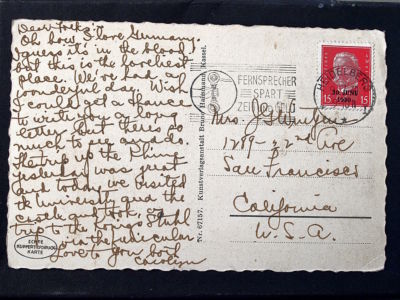 Dear Folks:
Oh how I love Germany.
Guess it's in the blood,
but this is the loveliest
place. We've had a
wonderful day. Wish
I could get a chance
to write you a long
letter but there is so
much to see and do.
The trip up the Rhine
yesterday was great
and today we visited
the University and the
castle and took
trip to the Konigs Stuhl
via the funicular
Love to you both
Carolyn
ECHTE
KUPFERTIEFDRUCK-
KARTE
Nr. 67157. Kunstverlagsanstalt Bruno Hansmann, Kassel.
FERNSPRECHER
SPART
ZEIT
HEIDELBERG
30. JUNI
1930
15 15
Mrs. J
1289 - 22nd Ave
San Francisco
California
U.S.A.